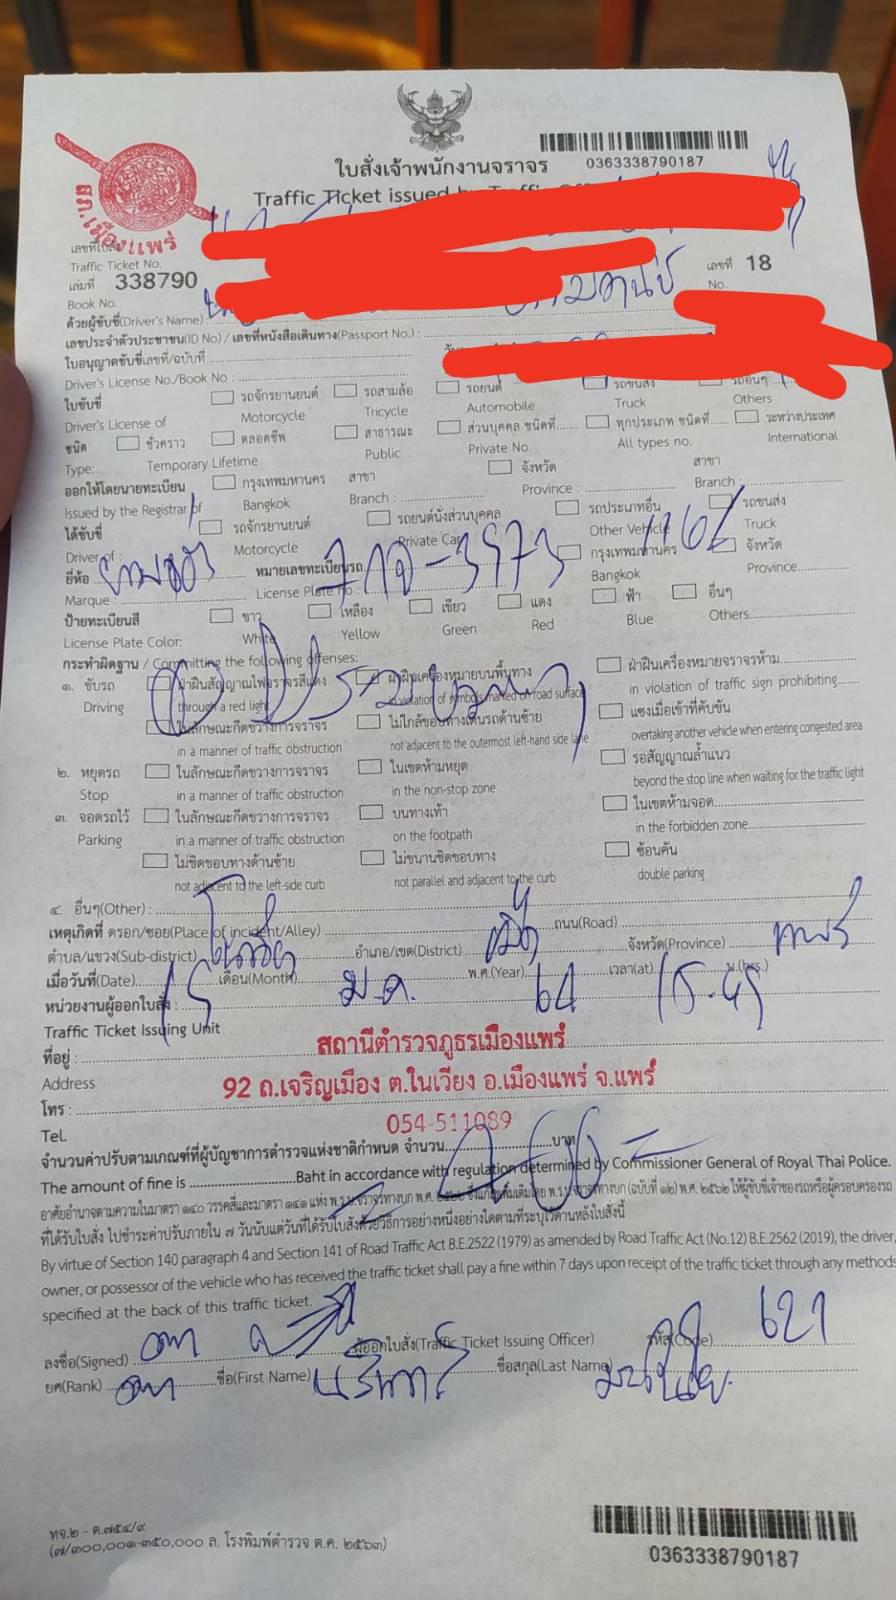 ใบสั่งเจ้าพนักงานจราจร
0363338790187
Traffic Ticket issued by
สภ.เมืองแพร่
เลขที่ใบสั่ง
Traffic Ticket No.
เล่มที่ 338790 เลขที่ 18
Book No. No.
ด้วยผู้ขับขี่(Driver's Name) :
เลขประจำตัวประชาชน(ID No) / เลขที่หนังสือเดินทาง(Passport No.) :
ใบอนุญาตขับขี่เลขที่/ฉบับที่
Driver's License No./Book No :
ใบขับขี่ รถจักรยานยนต์ รถสามล้อ รถยนต์ รถขนส่ง รถอื่นๆ
Driver's License of Motorcycle Tricycle Automobile Truck Others
ชนิด ชั่วคราว ตลอดชีพ สาธารณะ ส่วนบุคคล ชนิดที่ ทุกประเภท ชนิดที่ ระหว่างประเทศ
Type: Temporary Lifetime Public Private No. All types no. International
ออกให้โดยนายทะเบียน กรุงเทพมหานคร สาขา จังหวัด สาขา
Issued by the Registrar of Bangkok Branch : Province : Branch :
ได้ขับขี่ รถจักรยานยนต์ รถยนต์นั่งส่วนบุคคล รถประเภทอื่น รถขนส่ง
Driver of : Motorcycle Private Car Other Vehicle Truck
ยี่ห้อ หมายเลขทะเบียนรถ กรุงเทพมหานคร จังหวัด
Marque : License Plate no : 3973 Bangkok Province
ป้ายทะเบียนสี ขาว เหลือง เขียว แดง ฟ้า อื่นๆ
License Plate Color: White Yellow Green Red Blue Others
กระทำผิดฐาน / Committing the following offenses:
๑. ขับรถ ฝ่าฝืนสัญญาณไฟจราจรสีแดง ฝ่าฝืนเครื่องหมายบนพื้นทาง ฝ่าฝืนเครื่องหมายจราจรห้าม
Driving through a red light in violation of symbols marked on road surface in violation of traffic sign prohibiting
ในลักษณะกีดขวางการจราจร ไม่ใกล้ขอบทางเดินรถด้านซ้าย แซงเมื่อเข้าที่คับขัน
in a manner of traffic obstruction not adjacent to the outermost left-hand side lane overtaking another vehicle when entering congested area
๒. หยุดรถ ในลักษณะกีดขวางการจราจร ในเขตห้ามหยุด รอสัญญาณล้ำแนว
Stop in a manner of traffic obstruction in the non-stop zone beyond the stop line when waiting for the traffic light
๓. จอดรถไว้ ในลักษณะกีดขวางการจราจร บนทางเท้า ในเขตห้ามจอด
Parking in a manner of traffic obstruction on the footpath in the forbidden zone
ไม่ชิดขอบทางด้านซ้าย ไม่ขนานชิดขอบทาง ซ้อนคัน
not adjacent to the left-side curb not parallel and adjacent to the curb double parking
๔. อื่นๆ(Other) :
เหตุเกิดที่ ตรอก/ซอย(Place of incident/Alley) ถนน(Road)
ตำบล/แขวง(Sub-district) อำเภอ/เขต(District) จังหวัด(Province) แพร่
เมื่อวันที่(Date) 15 เดือน(Month) ม.ค. พ.ศ.(Year) 64 เวลา(at) น.(hrs.)
หน่วยงานผู้ออกใบสั่ง :
Traffic Ticket Issuing Unit
สถานีตำรวจภูธรเมืองแพร่
ที่อยู่ :
Address
92 ถ.เจริญเมือง ต.ในเวียง อ.เมืองแพร่ จ.แพร่
โทร :
Tel.
054-511089
จำนวนค่าปรับตามเกณฑ์ที่ผู้บัญชาการตำรวจแห่งชาติกำหนด จำนวน บาท
The amount of fine is Baht in accordance with regulation determined by Commissioner General of Royal Thai Police.
อาศัยอำนาจตามความในมาตรา ๑๔๐ วรรคสี่และมาตรา ๑๔๑ แห่ง พ.ร.บ.จราจรทางบก พ.ศ. ๒๕๒๒ ซึ่งแก้ไขเพิ่มเติมโดย พ.ร.บ.จราจรทางบก (ฉบับที่ ๑๒) พ.ศ. ๒๕๖๒ ให้ผู้ขับขี่เจ้าของรถหรือผู้ครอบครองรถ
ที่ได้รับใบสั่ง ไปชำระค่าปรับภายใน ๗ วันนับแต่วันที่ได้รับใบสั่งด้วยวิธีการอย่างหนึ่งอย่างใดตามที่ระบุไว้ด้านหลังใบสั่งนี้
By virtue of Section 140 paragraph 4 and Section 141 of Road Traffic Act B.E.2522 (1979) as amended by Road Traffic Act (No.12) B.E.2562 (2019), the driver,
owner, or possessor of the vehicle who has received the traffic ticket shall pay a fine within 7 days upon receipt of the traffic ticket through any methods
specified at the back of this traffic ticket.
ลงชื่อ(Signed) ผู้ออกใบสั่ง(Traffic Ticket Issuing Officer) รหัส(Code) 621
ยศ(Rank) ชื่อ(First Name) ชื่อสกุล(Last Name)
ทจ.๒ - ต.๗๕๔/๙
(๗/๓๐๐,๐๐๑-๓๕๐,๐๐๐ ล. โรงพิมพ์ตำรวจ ต.ค. ๒๕๖๓)
0363338790187